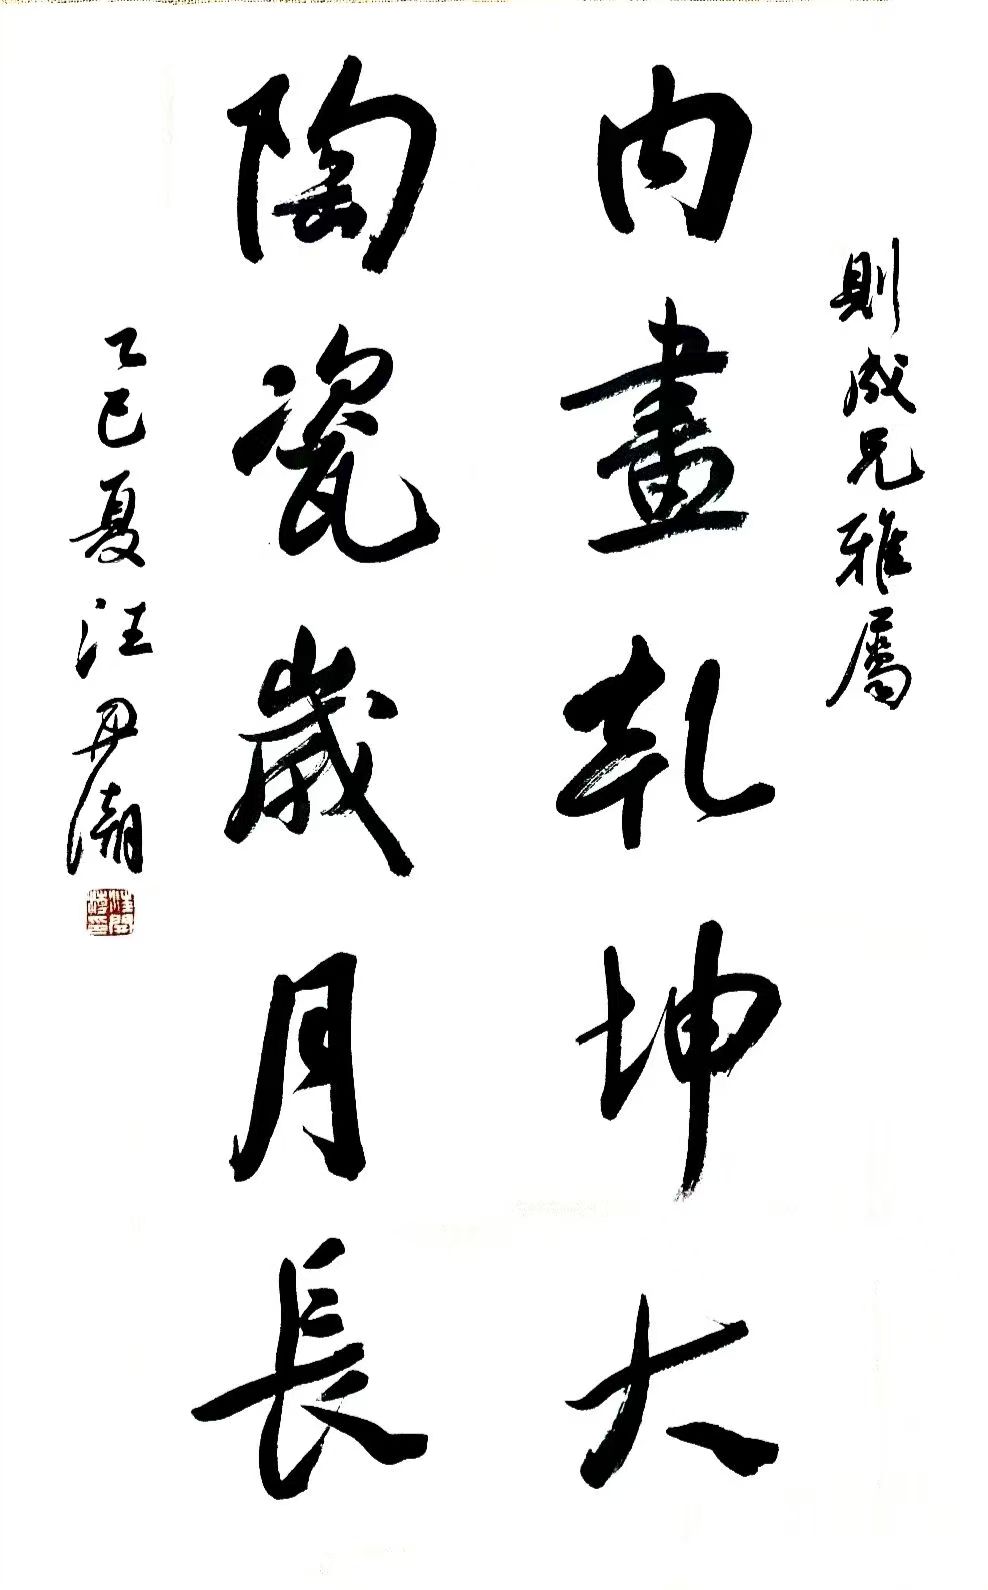 則成兄雅屬
內畫乾坤大
陶瓷歲月長
乙巳夏汪丹潮